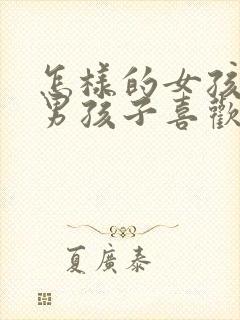 怎樣的女孩
男孩子喜歡
夏廣泰